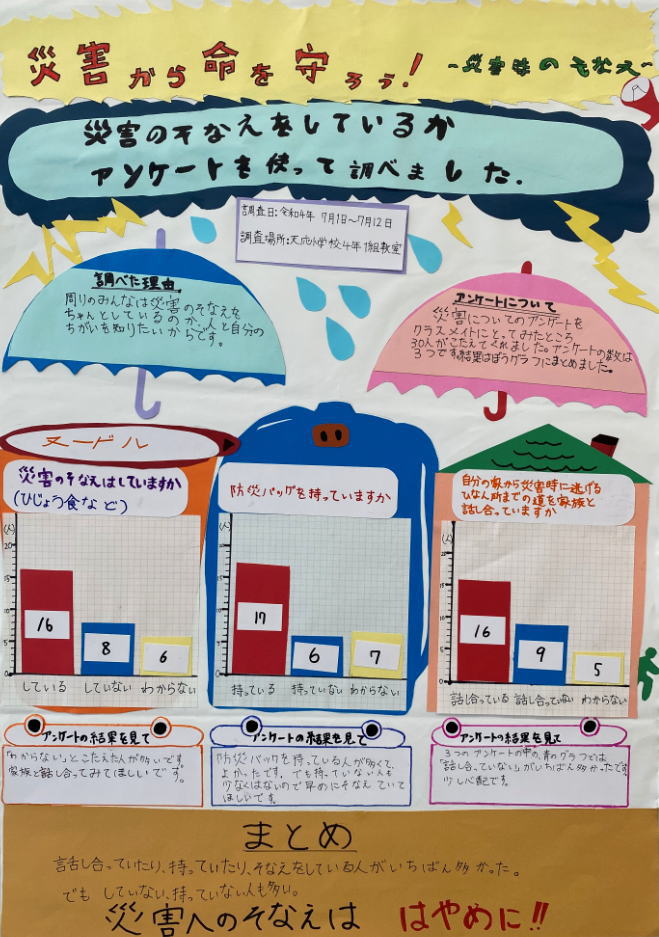 災害から命を守ろう! ~災害時のそなえ~
災害のそなえをしているか
アンケートを使って調べました.
調査日:令和4年 7月1日~7月12日
調査場所:天応小学校4年1組教室
調べた理由
周りのみんなは災害のそなえを
ちゃんとしているのか、人と自分の
ちがいを知りたいからです。
アンケートについて
災害についてのアンケートを
クラスメイトにとってみたところ
30人がこたえてくれました。アンケートの数は
3つです。結果はぼうグラフにまとめました。
ヌードル
災害のそなえはしていますか
(ひじょう食など)
(人)
20
15
10
5
0
16
8
6
している していない わからない
防災バッグを持っていますか
(人)
20
15
10
5
0
17
6
7
持っている 持っていない わからない
自分の家から災害時に逃げる
ひなん所までの道を家族と
話し合っていますか
(人)
20
15
10
5
0
16
9
5
話し合っている 話し合っていない わからない
アンケートの結果を見て
「わからない」とこたえた人が多いです。
家族と話し合ってみてほしいです。
アンケートの結果を見て
防災バックを持っている人が多くて、
よかったです。でも持っていない人も
少なくはないので早めにそなえていて
ほしいです。
アンケートの結果を見て
3つのアンケートの中の、青のグラフでは
「話し合っていない」がいちばん多かったです。
少し心配です。
まとめ
話し合っていたり、持っていたり、そなえをしている人がいちばん多かった。
でも していない、持っていない人も多い。
災害へのそなえは はやめに!!